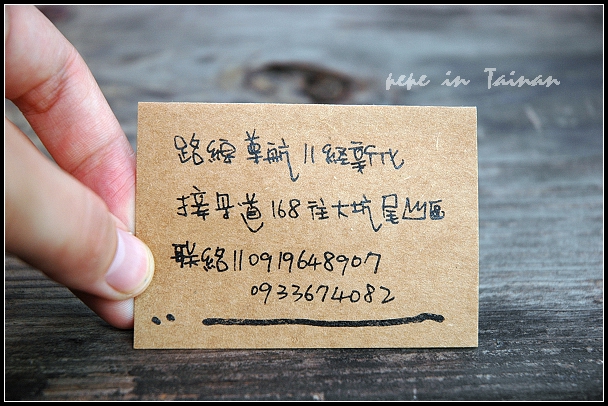 pepe in Tainan
路線導航11經新化
接縣道168往大坑尾山區
聯絡110919648907
0933674082